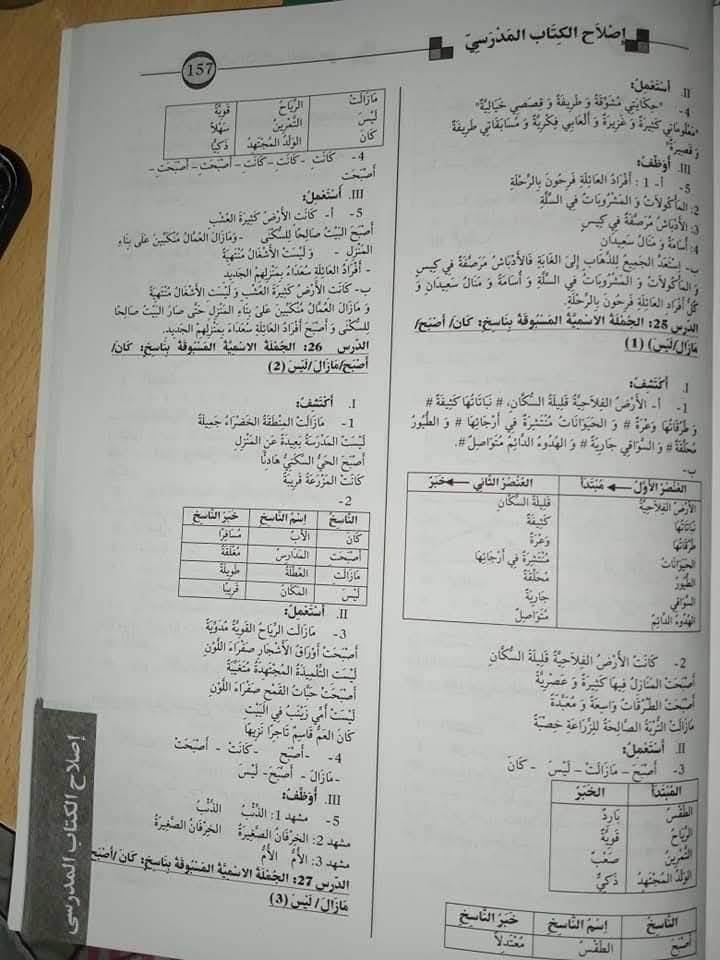 إصْلَاح الكِتَاب المَدْرَسِيّ
157
II. أَسْتَعْمِلُ:
4- "حِكَايَتِي مُشَوِّقَةٌ وَ طَرِيفَة وَ قِصَصِي خَيَالِيَّةٌ"
"مَعْلُومَاتِي كَثِيرَة وَ غَزِيرَة وَ أَلْعَابِي فِكْرِيَّة وَ مُسَابَقَاتِي طَرِيفَة
وَ قَصِيرَة"
III. أُوَظِّفُ:
5- أ- 1 : أَفْرَادُ العَائِلَةِ فَرِحُونَ بِالرِّحْلَةِ
2: المَأْكُولَاتُ وَ المَشْرُوبَاتُ فِي السَّلَّةِ
3: الأَدْبَاشُ مُرَصَّفَةٌ فِي كِيسٍ
4: أُسَامَة وَ مَنَال سَعِيدَانِ
ب- اِسْتَعَدَّ الجَمِيعُ لِلذَّهَابِ إِلَى الغَابَةِ فَالأَدْبَاشُ مُرَصَّفَة فِي كِيسٍ
وَ المَأْكُولَاتُ وَ المَشْرُوبَاتُ فِي السَّلَّةِ وَ أُسَامَة وَ مَنَال سَعِيدَانِ وَ
كُلُّ أَفْرَادِ العَائِلَةِ فَرِحُونَ بِالرِّحْلَةِ.
الدّرس 25: الجُمْلَة الاسْمِيَّة المَسْبُوقَة بِنَاسِخ: كَانَ/ أَصْبَحَ/
مَازَالَ/ لَيْسَ) (1)
I. أَكْتَشِفُ:
1- أ- الأَرْضُ الفِلَاحِيَّةُ قَلِيلَةُ السُّكَّانِ، # نَبَاتَاتُهَا كَثِيفَةٌ #
وَ طُرُقَاتُهَا وَعْرَةٌ # وَ الحَيَوَانَاتُ مُنْتَشِرَةٌ فِي أَرْجَائِهَا # وَ الطُّيُورُ
مُحَلِّقَةٌ # وَ السَّوَاقِي جَارِيَةٌ # وَ الهُدُوءُ الدَّائِمُ مُتَوَاصِلٌ #.
ب-
العُنْصُرُ الأَوَّلُ ← مُبْتَدَأ	العُنْصُرُ الثَّانِي ← خَبَرٌ
الأَرْضُ الفِلَاحِيَّةُ	قَلِيلَةُ السُّكَّانِ
نَبَاتَاتُهَا	كَثِيفَةٌ
طُرُقَاتُهَا	وَعْرَةٌ
الحَيَوَانَاتُ	مُنْتَشِرَةٌ فِي أَرْجَائِهَا
الطُّيُورُ	مُحَلِّقَةٌ
السَّوَاقِي	جَارِيَةٌ
الهُدُوءُ الدَّائِمُ	مُتَوَاصِلٌ
2- كَانَتْ الأَرْضُ الفِلَاحِيَّةُ قَلِيلَةَ السُّكَّانِ
أَصْبَحَتْ المَنَازِلُ فِيهَا كَثِيرَةً وَ عَصْرِيَّةً
أَصْبَحَتْ الطُّرُقَاتُ وَاسِعَةً وَ مُعَبَّدَةً
مَازَالَتْ التُّرْبَةُ الصَّالِحَةُ لِلزِّرَاعَةِ خِصْبَةً
II. أَسْتَعْمِلُ:
3- أَصْبَحَ – مَازَالَتْ – لَيْسَ - كَانَ
المُبْتَدَأُ	الخَبَرُ
الطَّقْسُ	بَارِدٌ
الرِّيَاحُ	قَوِيَّةٌ
التَّمْرِينُ	صَعْبٌ
الوَلَدُ المُجْتَهِدُ	ذَكِيٌّ
النَّاسِخُ	اِسْمُ النَّاسِخِ	خَبَرُ النَّاسِخِ
أَصْبَحَ	الطَّقْسُ	مُعْتَدِلاً
مَازَالَتْ	الرِّيَاحُ	قَوِيَّةً
لَيْسَ	التَّمْرِينُ	سَهْلاً
كَانَ	الوَلَدُ المُجْتَهِدُ	ذَكِيًّا
4- كَانَتْ -كَانَتْ- كَانَتْ- أَصْبَحَتْ – أَصْبَحَتْ-
أَصْبَحَتْ
III. أَسْتَعْمِلُ:
5- أ- كَانَتْ الأَرْضُ كَثِيرَةَ العُشْبِ
أَصْبَحَ البَيْتُ صَالِحًا لِلسُّكْنَى -وَمَازَالَ العُمَّالُ مُنْكَبِّينَ عَلَى بِنَاءِ
المَنْزِلِ - وَ لَيْسَتْ الأَشْغَالُ مُنْتَهِيَةً
- أَفْرَادُ العَائِلَةِ سُعَدَاءُ بِمَنْزِلِهِمْ الجَدِيدِ
ب- كَانَتْ الأَرْضُ كَثِيرَةَ العُشْبِ وَ لَيْسَتْ الأَشْغَالُ مُنْتَهِيَةً
وَ مَازَالَ العُمَّالُ مُنْكَبِّينَ عَلَى بِنَاءِ المَنْزِلِ حَتَّى صَارَ البَيْتُ صَالِحًا
لِلسُّكْنَى وَ أَصْبَحَ أَفْرَادُ العَائِلَةِ سُعَدَاءَ بِمَنْزِلِهِمْ الجَدِيدِ.
الدّرس 26: الجُمْلَة الاسْمِيَّة المَسْبُوقَة بِنَاسِخ: كَانَ/
أَصْبَحَ/مَازَالَ/لَيْسَ (2)
I. أَكْتَشِفُ:
1- مَازَالَتْ المِنْطَقَةُ الخَضْرَاءُ جَمِيلَةً
لَيْسَتْ المَدْرَسَةُ بَعِيدَةً عَنِ المَنْزِلِ
أَصْبَحَ الحَيُّ السَّكَنِيُّ هَادِئًا
كَانَتْ المَزْرَعَةُ قَرِيبَةً
2-
النَّاسِخُ	اِسْمُ النَّاسِخِ	خَبَرُ النَّاسِخِ
كَانَ	الأَبُ	مُسَافِرًا
أَصْبَحَتْ	المَدَارِسُ	مُغْلَقَةً
مَازَالَتْ	العُطْلَةُ	طَوِيلَةً
لَيْسَ	المَكَانُ	قَرِيبًا
II. أَسْتَعْمِلُ:
3- مَازَالَتْ الرِّيَاحُ القَوِيَّةُ مُدَوِّيَةً
أَصْبَحَتْ أَوْرَاقُ الأَشْجَارِ صَفْرَاءَ اللَّوْنِ
لَيْسَتْ التِّلْمِيذَةُ المُجْتَهِدَةُ مُتَغَيِّبَةً
أَصْبَحَتْ حَبَّاتُ القَمْحِ صَفْرَاءَ اللَّوْنِ
لَيْسَتْ أُمِّي زَيْنَبُ فِي البَيْتِ
كَانَ العَمُّ قَاسِمٌ تَاجِرًا نَزِيهًا
4- -أَصْبَحَ -كَانَتْ - أَصْبَحَتْ
-مَازَالَ - أَصْبَحَ- لَيْسَ
III. أُوَظِّفُ:
5- مشهد 1: الذِّئْبُ الذِّئْبُ
مشهد 2: الخِرْفَانُ الصَّغِيرَةُ الخِرْفَانُ الصَّغِيرَةُ
مشهد 3: الأُمُّ الأُمُّ
الدّرس 27: الجُمْلَة الاسْمِيَّة المَسْبُوقَة بِنَاسِخ: كَانَ/أَصْبَح
مَازَالَ/ لَيْسَ (3)
إصلاح الكتاب المدرسي